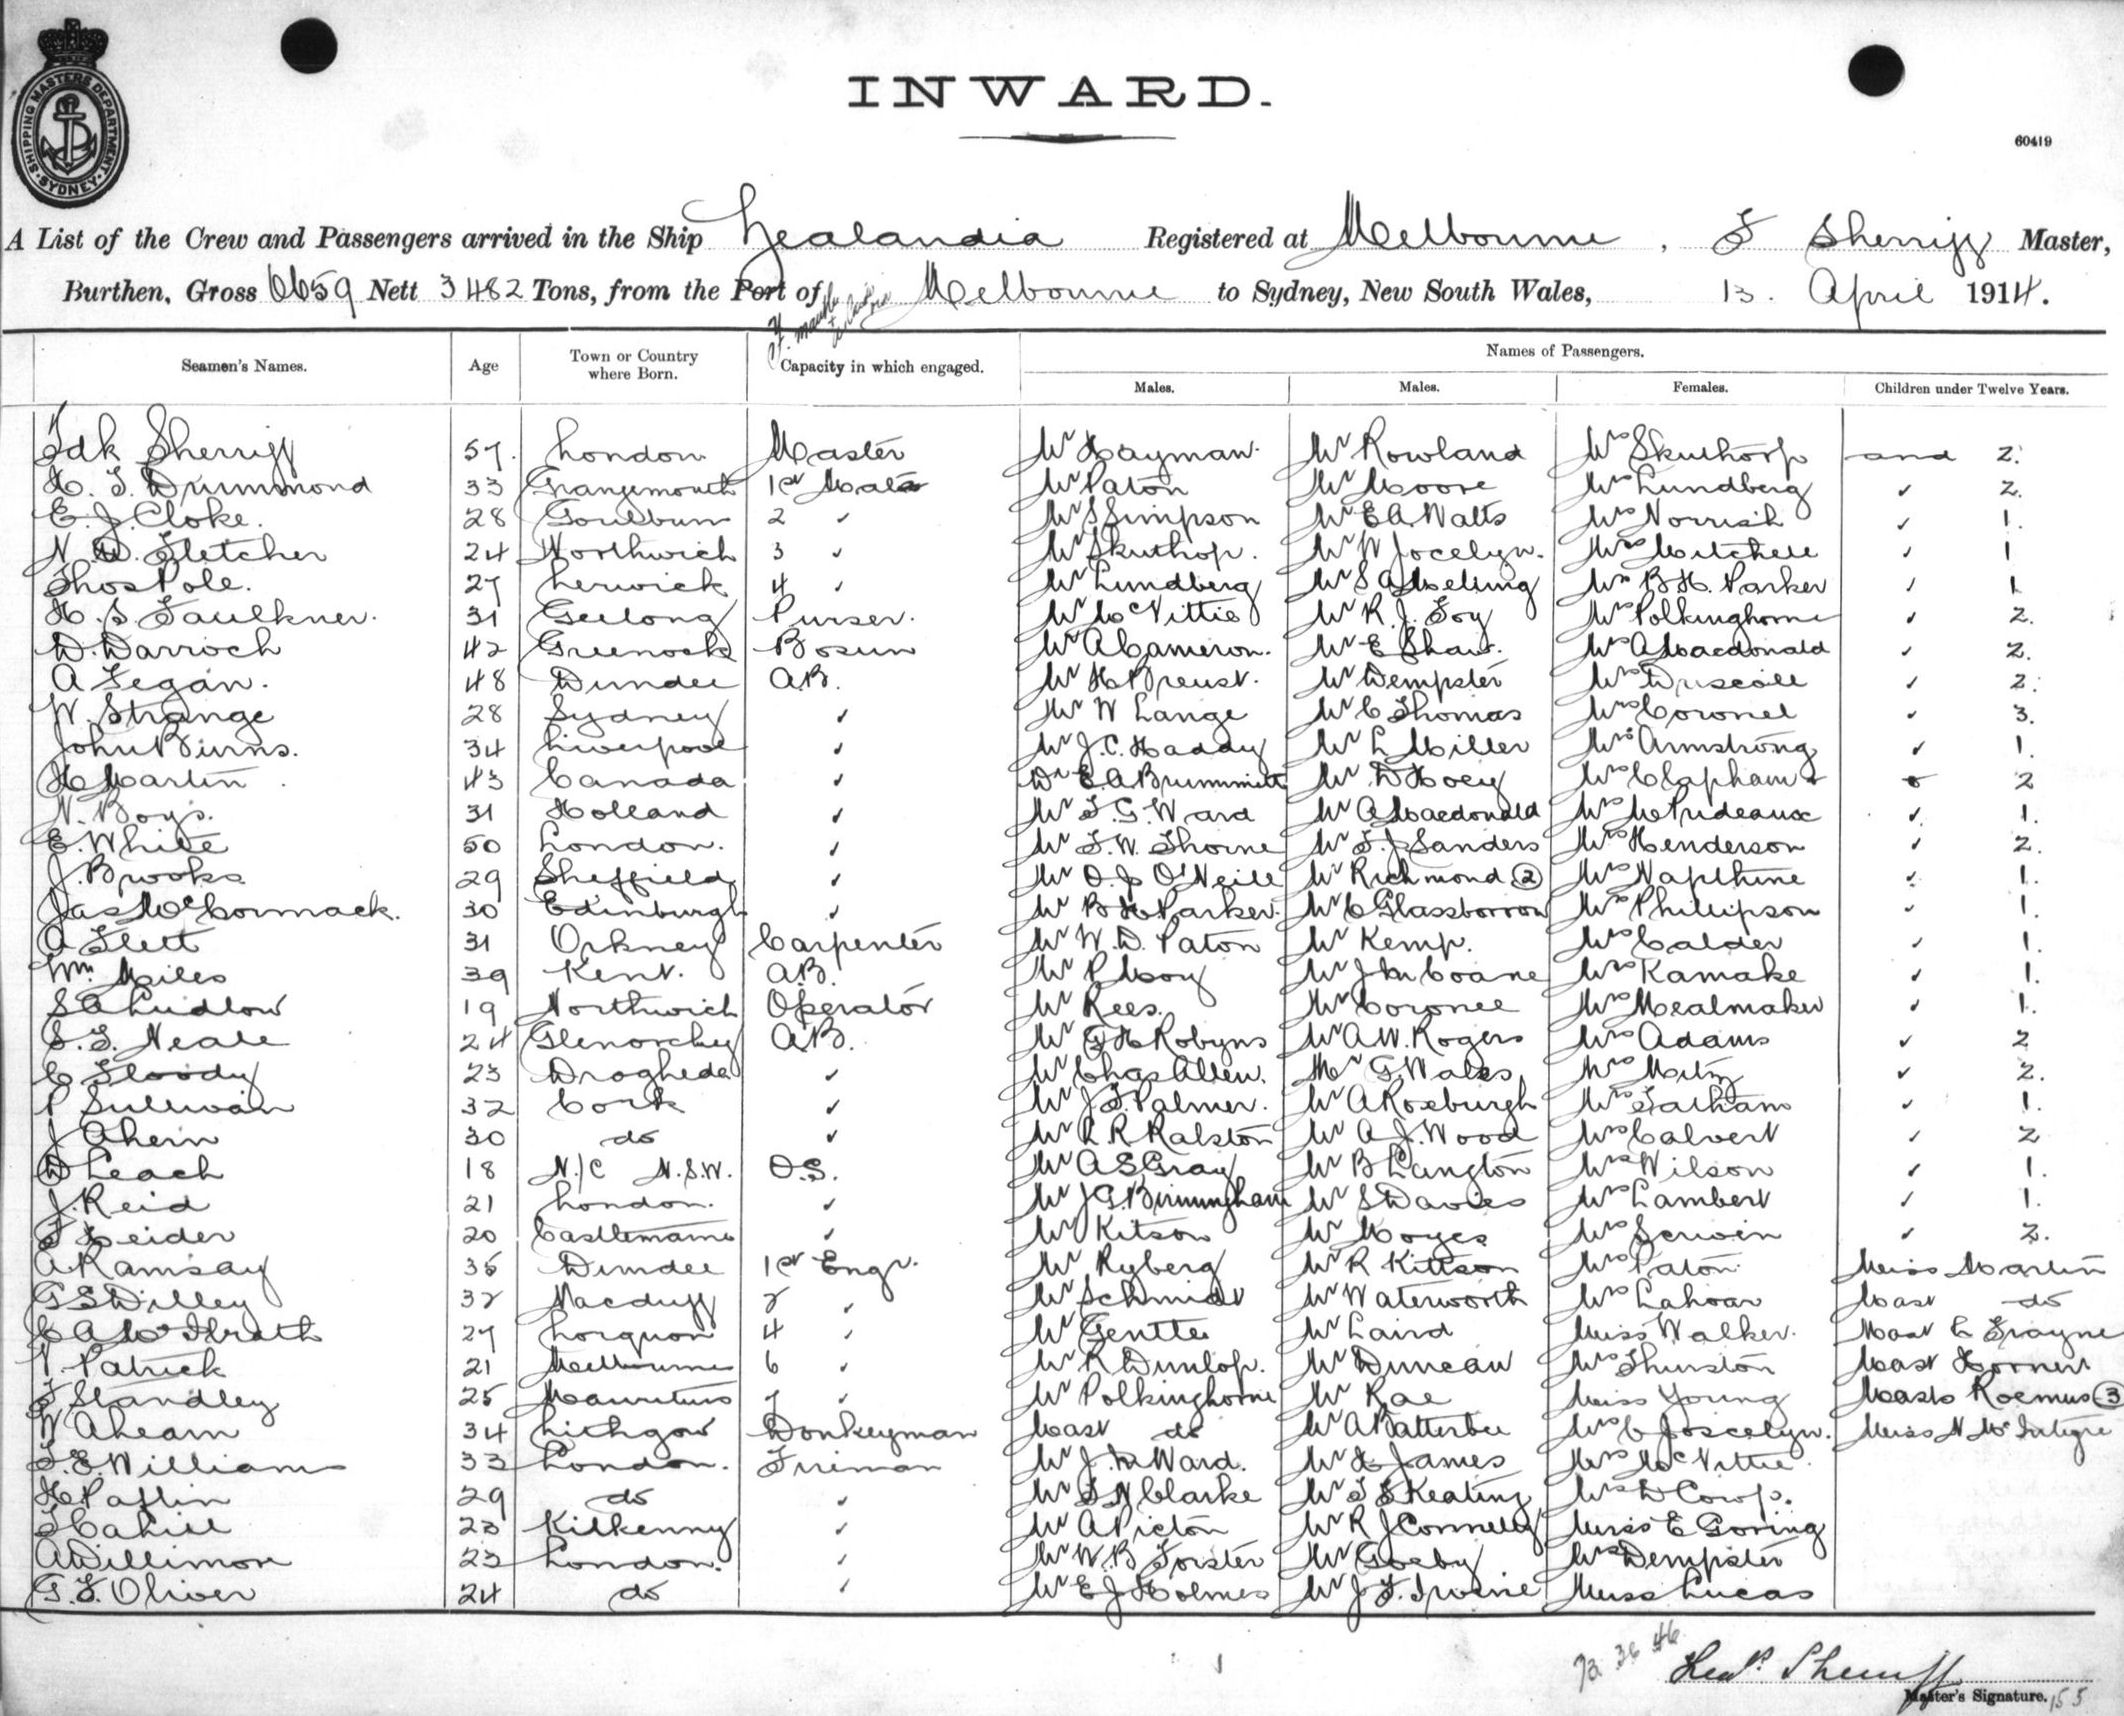 SHIPPING MASTERS DEPARTMENT. SYDNEY.
INWARD.
60419
A List of the Crew and Passengers arrived in the Ship Zealandia Registered at Melbourne, F Sherriff Master,
Burthen, Gross 6659 Nett 3482 Tons, from the Port of Melbourne to Sydney, New South Wales, 13. April 1914.
Seamen's Names. Age Town or Country where Born. Capacity in which engaged. Names of Passengers.
Males. Males. Females. Children under Twelve Years.
Fdk Sherriff 57. London Master Mr Hayman. Mr Rowland Mrs Skuthorp and 2.
H. F. Drummond 33 Grangemouth 1st Mate Mr Paton Mr Moore Mrs Lundberg ✓ 2.
E. J. Cloke. 28 Goulburn 2 ✓ Mr S Simpson Mr E A Watts Mrs Norrish ✓ 1.
N. W. Fletcher 24 Northwich 3 ✓ Mr Skuthop. Mr W Jocelyn. Mrs Mitchell ✓ 1
Thos Pole. 27 Lerwick 4 ✓ Mr Lundberg Mr S A Meling Mrs B H. Parker ✓ 1
H. S. Faulkner. 31 Geelong Purser. Mr McVittie Mr R. J. Foy Mrs Polkinghorne ✓ 2.
D. Darroch 42 Greenock Bosun Mr A Cameron. Mr E Shaw. Mrs A Macdonald ✓ 2.
A Fegan. 48 Dundee A.B. Mr H Preust. Mr Dempster Mrs Driscoll ✓ 2.
W. Strange 28 Sydney ✓ Mr W Lange Mr C Thomas Mrs Coronel ✓ 3.
John Burns. 34 Liverpool ✓ Mr J. C. Haddy Mr L Miller Mrs Armstrong ✓ 1.
H Martin 43 Canada ✓ Dr E. A. Brummitt Mr D Hoey Mrs Clapham ✓ 2
N. Boys. 31 Holland ✓ Mr F. G. Ward Mr A Macdonald Mrs M Prideaux ✓ 1.
E. White 50 London. ✓ Mr F. W. Thorne Mr F. J Sanders Mrs Henderson ✓ 2.
J. Brooks 29 Sheffield ✓ Mr O. J O'Neill Mr Richmond (2) Mrs Napthine ✓ 1.
Jas McCormack. 30 Edinburgh ✓ Mr B H Parker. Mr C Glassborrow Mrs Phillipson ✓ 1.
A Flett 31 Orkney Carpenter Mr W. D. Paton Mr Kemp. Mrs Calder ✓ 1.
Wm. Miles 39 Kent. A.B. Mr P Moy Mr J M Coane Mrs Kamake ✓ 1.
S A Ludlow 19 Northwich Operator Mr Rees. Mr Coronel Mrs Mealmaker ✓ 1.
S. F. Neale 24 Glenorchy A.B. Mr G H Robyns Mr A W. Rogers Mrs Adams ✓ 2
C Floody 23 Drogheda ✓ Mr Chas Allen. Mr G. Wales Mrs Mitz ✓ 2.
P Sullivan 32 Cork ✓ Mr J. F. Palmer. Mr A Roxburgh Mrs Tatham ✓ 1.
J Ahern 30 do ✓ Mr L. R Ralston Mr A J. Wood Mrs Calvert ✓ 2
D Leach 18 N/C N.S.W. O.S. Mr A S Gray Mr B Langton Mrs Wilson ✓ 1.
J. Reid 21 London. ✓ Mr J G. Birmingham Mr S Davies Mrs Lambert ✓ 1.
F Heider 20 Castlemaine ✓ Mr Kitson Mr Moyes Mrs Serwin ✓ 2.
A Ramsay 35 Dundee 1st Engr. Mr Ryberg Mr R Kittson Mrs Paton Miss Martin
G S Dilley 32 Macduff 2 ✓ Mr Schmidt Mr Waterworth Mrs Mast do
C A McIlrath 27 4 ✓ Mr Gentle Mr Laird Miss Walker. Mast L Frayne
V. Patrick 21 Melbourne 6 ✓ Mr R Dunlop. Mr Duncan Mrs Thurston Mast Horner
F Standley 25 Mauritius 7 ✓ Mr Polkinghorne Mr Rae Miss Young Masts Roemus (3)
W Ahearn 34 Lithgow Donkeyman Mast do Mr A Batterbee Mrs C Joscelyn. Miss N McIntyre
F. E. Williams 33 London. Fireman Mr J. M Ward. Mr H James Mrs McVittie
H. Paflin 29 do ✓ Mr F N Clarke Mr F F Keating Mrs D Cowp.
T Cahill 23 Kilkenny ✓ Mr A Picton Mr R J Connelly Miss E Goring
A Willimore 23 London. ✓ Mr W. B Forster Mr Goeby Mrs Dempster
G. F. Oliver 24 do ✓ Mr E J Holmes Mr J. F. Irvine Miss Lucas
73 36 46
Fredk. Sherriff
Master's Signature. 155